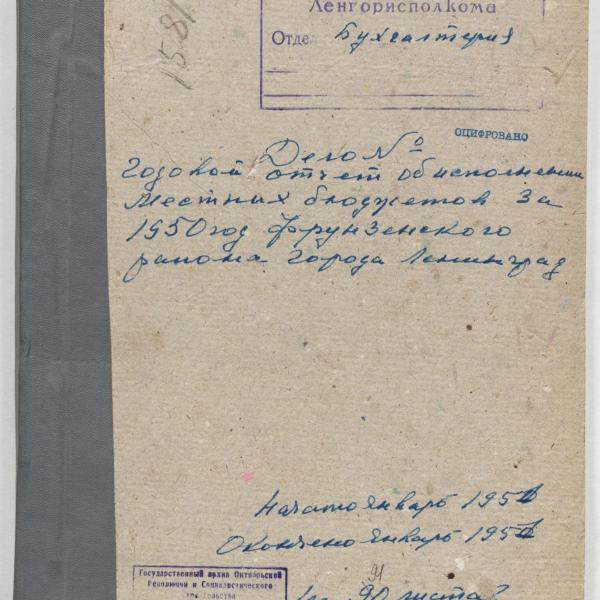 Ленгорисполкома
Отдел Бухгалтерия
15.81
ОЦИФРОВАНО
Дело №
Годовой отчет об исполнении
местных бюджетов за
1950 год Фрунзенского
района города Ленинград
Начато январь 1951
Окончено январь 1951
91
90 листов
Государственный архив Октябрьской
Революции и Социалистического